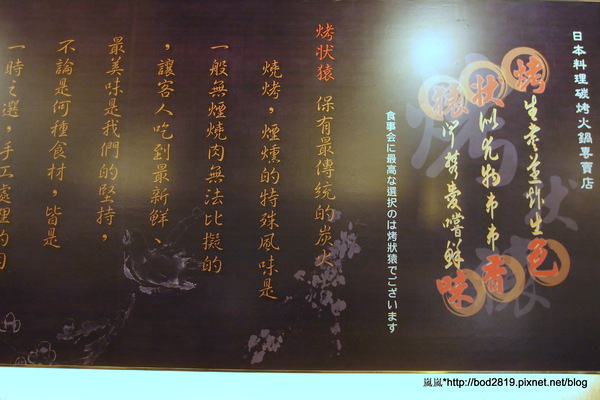 日本料理碳烤火鍋專賣店
烤生老 生色
狀 物 香
猿 愛嚐鮮味
食事会に最高な選択のは烤狀猿でございます
烤状猿 保有最傳統的炭火
燒烤，煙燻的特殊風味是
一般無煙燒肉無法比擬的
，讓客人吃到最新鮮、
最美味是我們的堅持，
不論是何種食材，皆是
一時之選，手工處理的
嵐嵐*http://bod2819.pixnet.net/blog